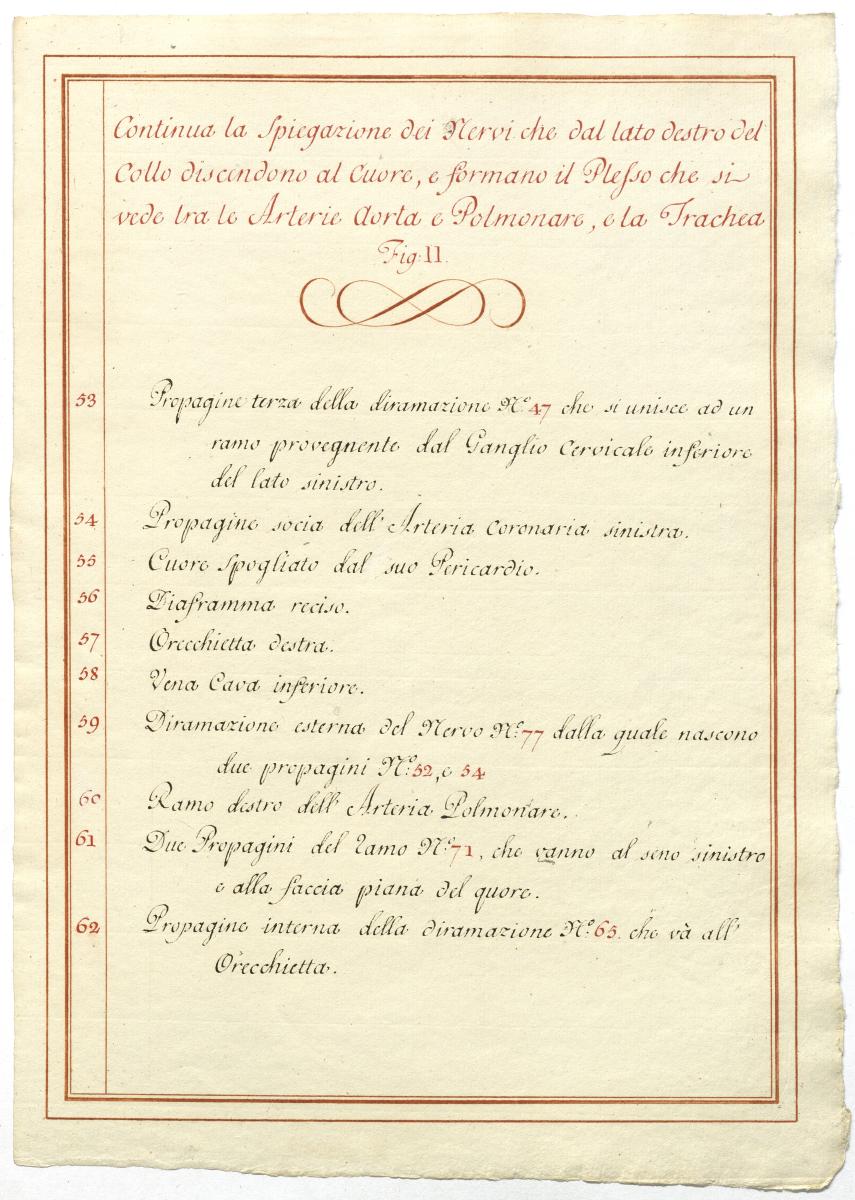 Continua la Spiegazione dei Nervi che dal lato destro del
Collo discendono al Cuore, e formano il Plesso che si
vede tra le Arterie Aorta e Polmonare, e la Trachea
Fig: II.
53 Propagine terza della diramazione N.º 47 che si unisce ad un
ramo provegnente dal Ganglio Cervicale inferiore
del lato sinistro.
54 Propagine socia dell' Arteria Coronaria sinistra.
55 Cuore Spogliato dal suo Pericardio.
56 Diaframma reciso.
57 Orecchietta destra.
58 Vena Cava inferiore.
59 Diramazione esterna del Nervo N.º 77 dalla quale nascono
due propagini N.º 52, e 54
60 Ramo destro dell' Arteria Polmonare.
61 Due Propagini del Ramo N.º 71, che vanno al seno sinistro
e alla faccia piana del quore.
62 Propagine interna della diramazione N.º 65. che và all'
Orecchietta.